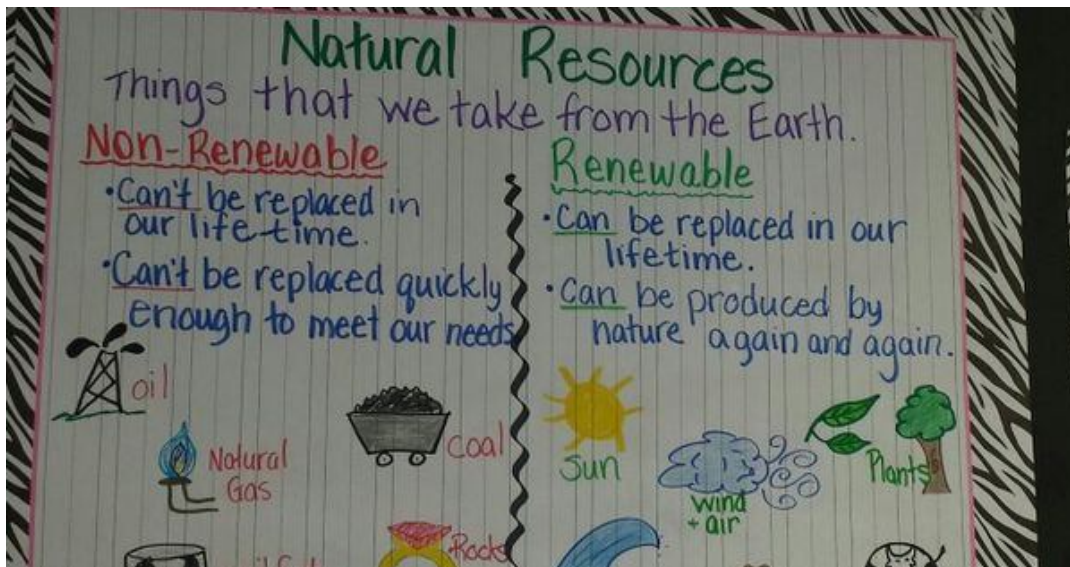 Natural Resources
Things that we take from the Earth.
Non-Renewable
• Can't be replaced in
our life time.
• Can't be replaced quickly
enough to meet our needs
oil
Natural
Gas
Coal
Rocks
Renewable
• Can be replaced in our
lifetime.
• Can be produced by
nature again and again.
Sun
wind
+ air
Plants